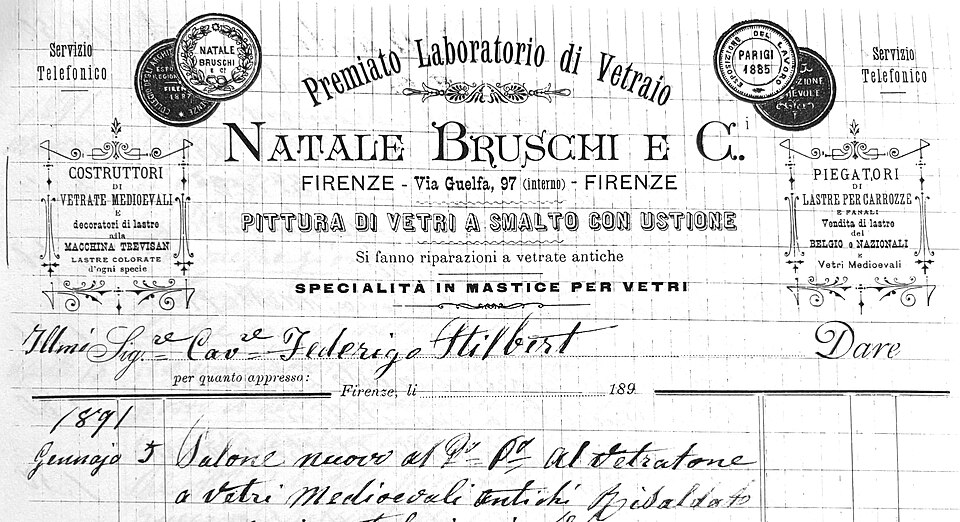 Servizio
Telefonico
NATALE
BRUSCHI
E C.
Premiato Laboratorio di Vetraio
ESPOSIZIONE DEL LAVORO
PARIGI
1885
Servizio
Telefonico
NATALE BRUSCHI E C.i
FIRENZE - Via Guelfa, 97 (interno) - FIRENZE
PITTURA DI VETRI A SMALTO CON USTIONE
Si fanno riparazioni a vetrate antiche
SPECIALITÀ IN MASTICE PER VETRI
COSTRUTTORI
DI
VETRATE MEDIOEVALI
E
decoratori di lastre
alla
MACCHINA TREVISAN
LASTRE COLORATE
d'ogni specie
PIEGATORI
DI
LASTRE PER CARROZZE
E FANALI
Vendita di lastre
del
BELGIO e NAZIONALI
e
Vetri Medioevali
Illmi Sig.re Cavre Federigo Stibbert Dare
per quanto appresso:
Firenze, li 189
1891
Gennajo 5 Salone nuovo al al Vetratone
a Vetri Medioevali antichi Risaldato